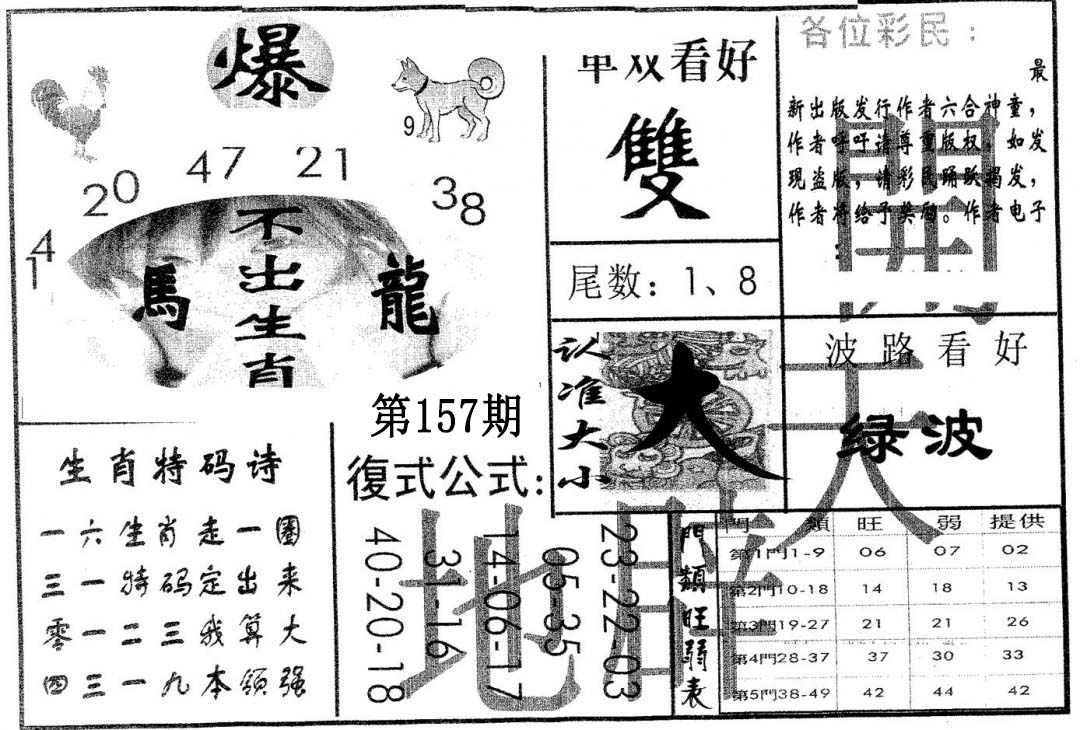 爆
9
14
20
47
21
38
不出生肖
馬
龍
单双看好
雙
尾数：1、8
各位彩民：
最
新出版发行作者六合神童，
作者呼吁请尊重版权。如发
现盗版，请彩民踊跃揭发，
作者将给予奖励。作者电子
：
認准大小
大
波路看好
绿波
第157期
復式公式:
40-20-18
31-16
14-06-17
05-35
23-22-03
生肖特码诗
一六生肖走一圈
三一特码定出来
零一二三我算大
四三一九本领强
門類旺弱表
門 類 旺 弱 提供
第1門1-9 06 07 02
第2門10-18 14 18 13
第3門19-27 21 21 26
第4門28-37 37 30 33
第5門38-49 42 44 42